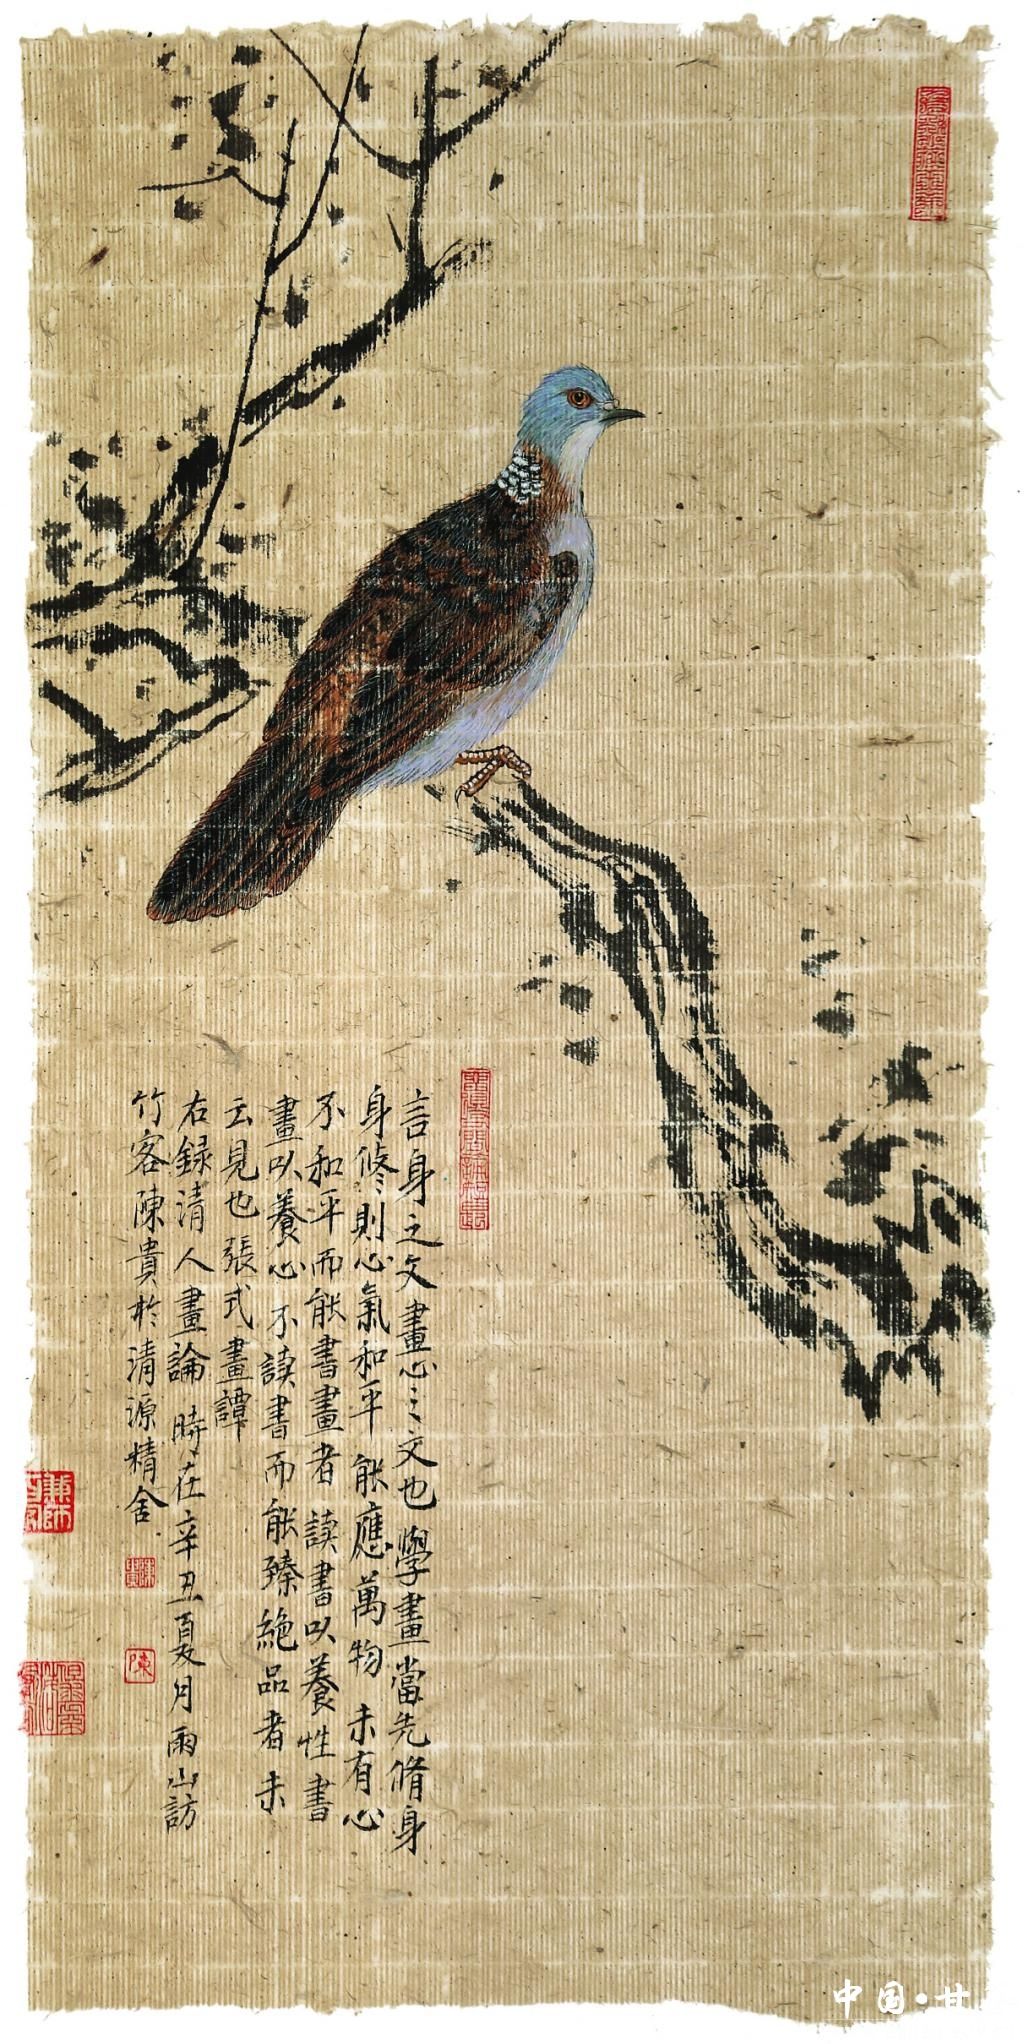 言身之文畫心之文也學畫當先脩身
身修則心氣和平能應萬物未有心
不和平而能書畫者讀書以養性書
畫以養心不讀書而能臻絶品者未
云見也張式畫譚
右録清人畫論時在辛丑夏月雨山訪
竹客陳貴於清源精舍
陳
中国·甘